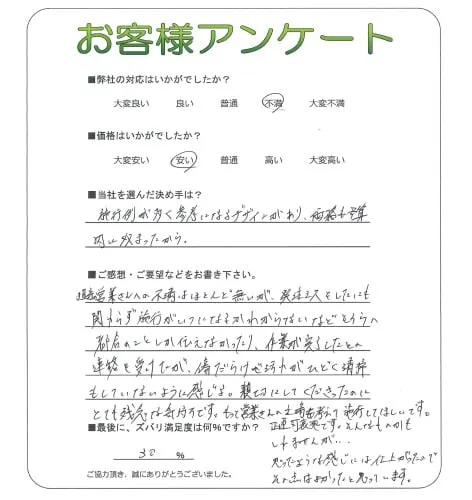 お客様アンケート
■弊社の対応はいかがでしたか？
大変良い 良い 普通 不満 大変不満
■価格はいかがでしたか？
大変安い 安い 普通 高い 大変高い
■当社を選んだ決め手は？
施行例が多く参考になるデザインがあり、価格も予算
内に収まったから。
■ご感想・ご要望などをお書き下さい。
営業さんへの不満はほとんど無いが、発注をしたにも
関わらず施行がいつになるかわからないなどそちらの
都合のことしか伝えなかったり、作業が完了したとの
連絡を受けたが、傷だらけで汚れがひどく清掃
もしていないように感じる。親切にしてくださったのに
とても残念な気持ちです。もっと営業さんの立場も考えて施行してほしいです。
正直可哀想です。そんなものかも
しれませんが…
思ったような感じには仕上がったので
その点はよかったと思っています。
■最後に、ズバリ満足度は何％ですか？
30 ％
ご協力頂き、誠にありがとうございました。